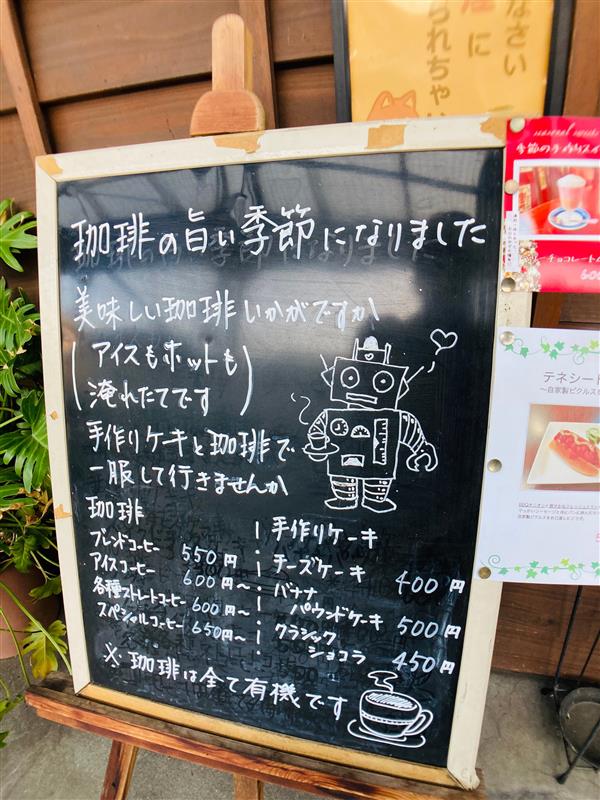 なさい
に
られちゃい
珈琲の旨い季節になりました
美味しい珈琲いかがですか
(アイスもホットも
淹れたてです)
手作りケーキと珈琲で
一服して行きませんか
珈琲
ブレンドコーヒー 550円
アイスコーヒー 600円〜
各種ストレートコーヒー 600円〜
スペシャルコーヒー 650円〜
手作りケーキ
チーズケーキ 400円
バナナ
パウンドケーキ 500円
クラシック
ショコラ 450円
※珈琲は全て有機です
季節の手作りスイ
ーチョコレートの
600
テネシード
〜自家製ピクルスを